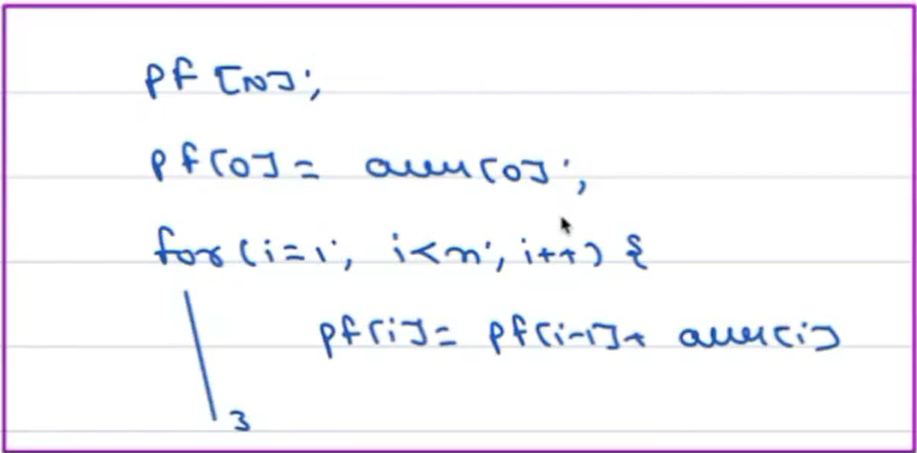 pf[N];
pf[0] = arr[0];
for(i=1; i<n; i++) {
pf[i] = pf[i-1] + arr[i]
}